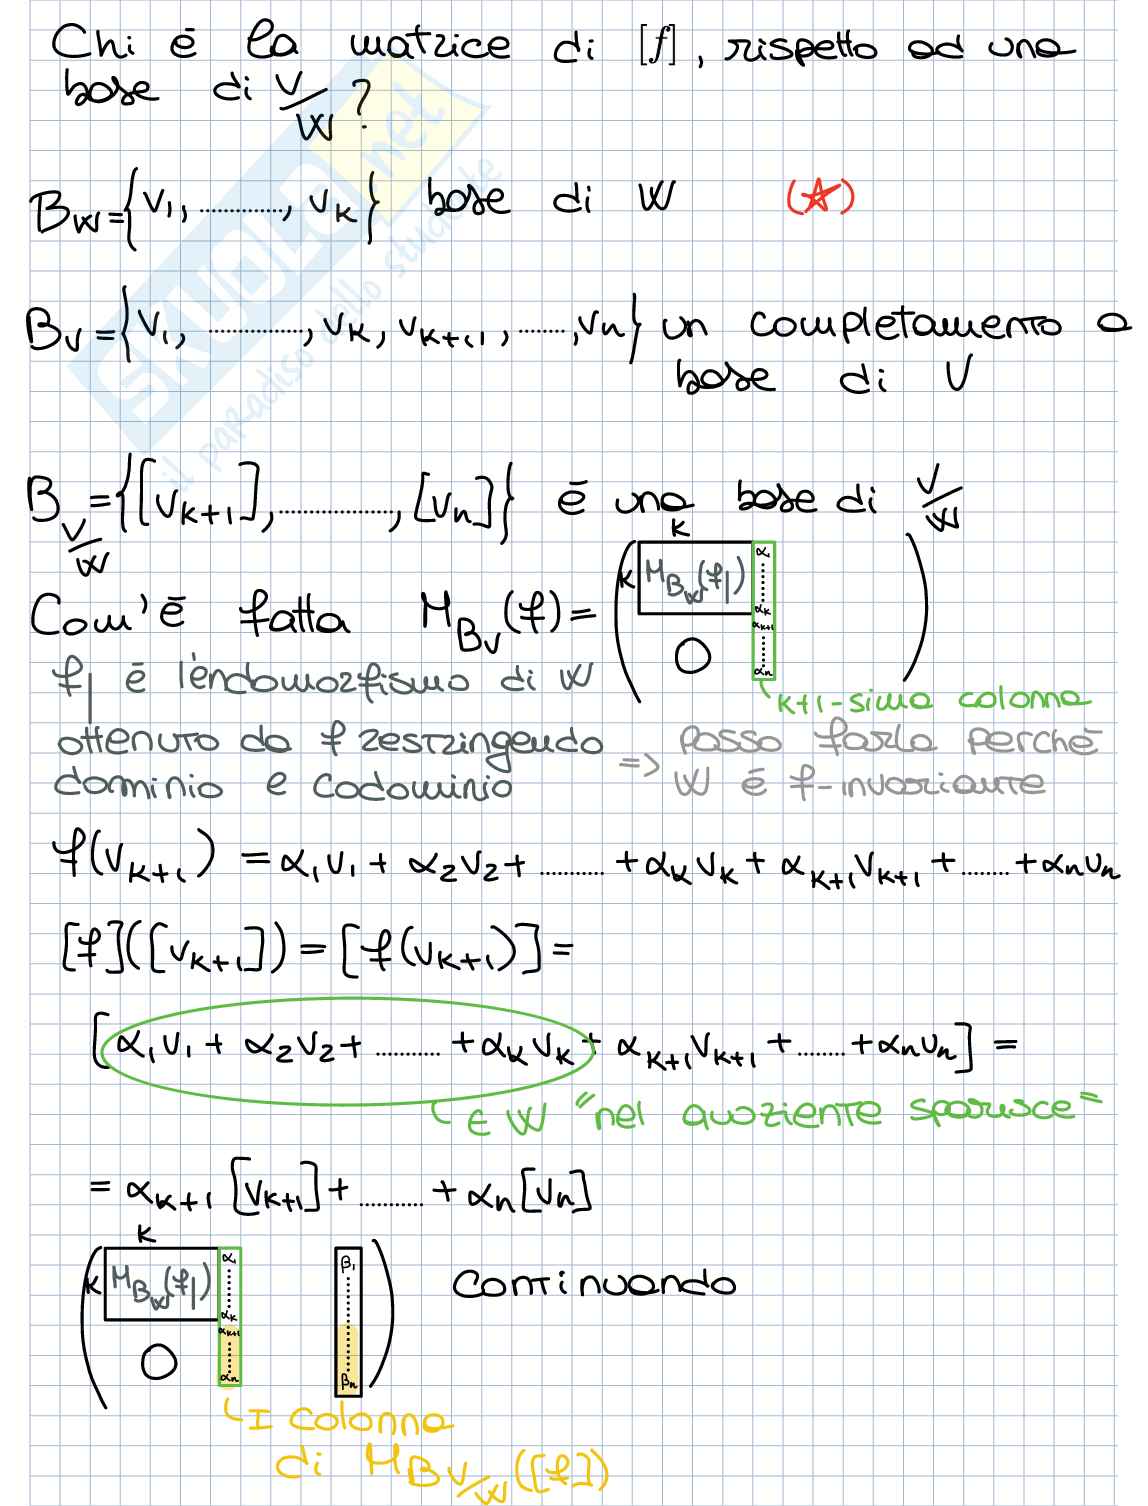 Chi è la matrice di [f], rispetto ad una
base di V/W?
B_W = {v₁, ............, v_k} base di W (☆)
B_V = {v₁, ............, v_k, v_{k+1}, ......, v_n} un completamento a
base di V
B_{V/W} = {[v_{k+1}], ..............., [v_n]} è una base di V/W
k
Com'è fatta M_{B_V}(f) = ( k M_{B_W}(f|) 0 α₁ ...... α_k α_{k+1} ...... α_n )
k+1-sima colonna
f| è l'endomorfismo di W
ottenuto da f restringendo
dominio e codominio
=> Posso farlo perchè
W è f-invariante
f(v_{k+1}) = α₁v₁ + α₂v₂ + .......... + α_kv_k + α_{k+1}v_{k+1} + ....... + α_nv_n
[f]([v_{k+1}]) = [f(v_{k+1})] =
[α₁v₁ + α₂v₂ + .......... + α_kv_k + α_{k+1}v_{k+1} + ....... + α_nv_n] =
∈ W "nel quoziente sparisce"
= α_{k+1}[v_{k+1}] + .......... + α_n[v_n]
k
( k M_{B_W}(f|) 0 α₁ ...... α_k α_{k+1} ...... α_n β₁ ............ β_n ) Continuando
I colonna
di M_{B_{V/W}}([f])
SKUOLA.net
il paradiso dello studente